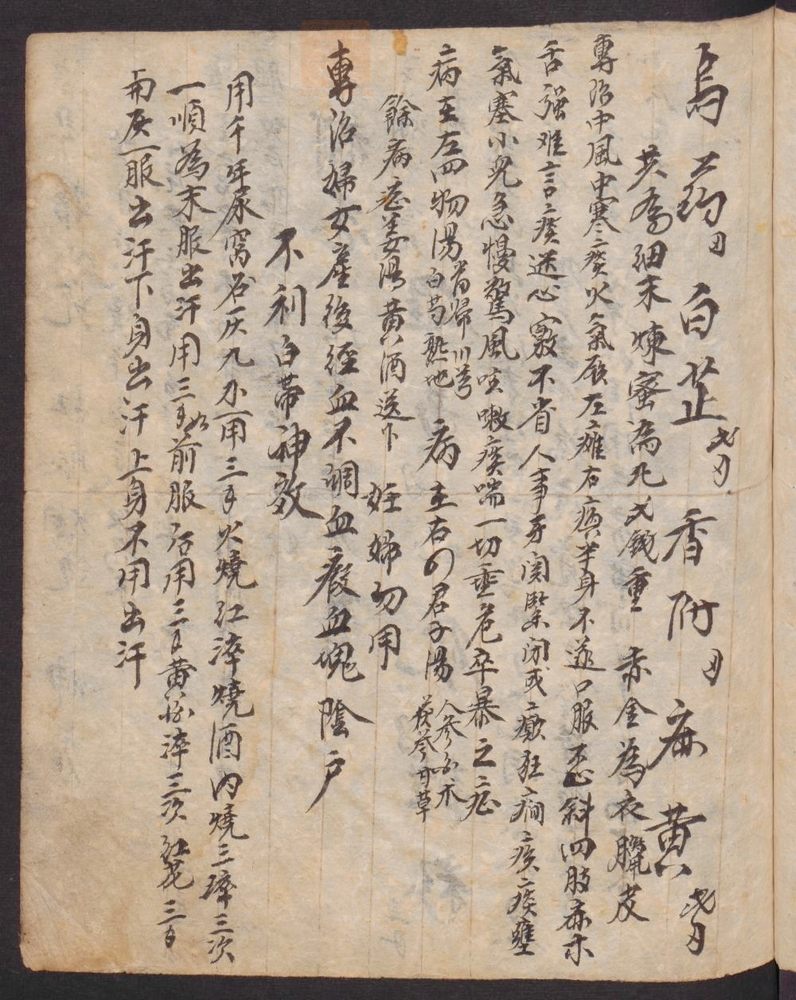 烏药 白芷 香附 麻黄
共為細末煉蜜為丸弍錢重 赤金為衣臘皮
專治中風中寒痰火氣厥左瘫右痪半身不遂口眼歪斜四肢麻木
舌强难言痰迷心竅不省人事牙関緊闭或癲狂癎疾痰壅
氣塞小児急慢驚風咳嗽痰喘一切垂危卒暴之症
病在左四物湯 當歸川芎 白芍熟地 病在右四君子湯 人参白朮 茯苓甘草
餘病症姜湯黄酒送下 妊婦勿用
專治婦女產後經血不调血瘕血塊陰户
不利白帶神效
用千年尿窩石 用三 火燒红淬燒酒内燒三 淬三次
一順為末服出汗用三 前服 用三 黄 淬三次 红花三
服出汗下身出汗上身不用出汗